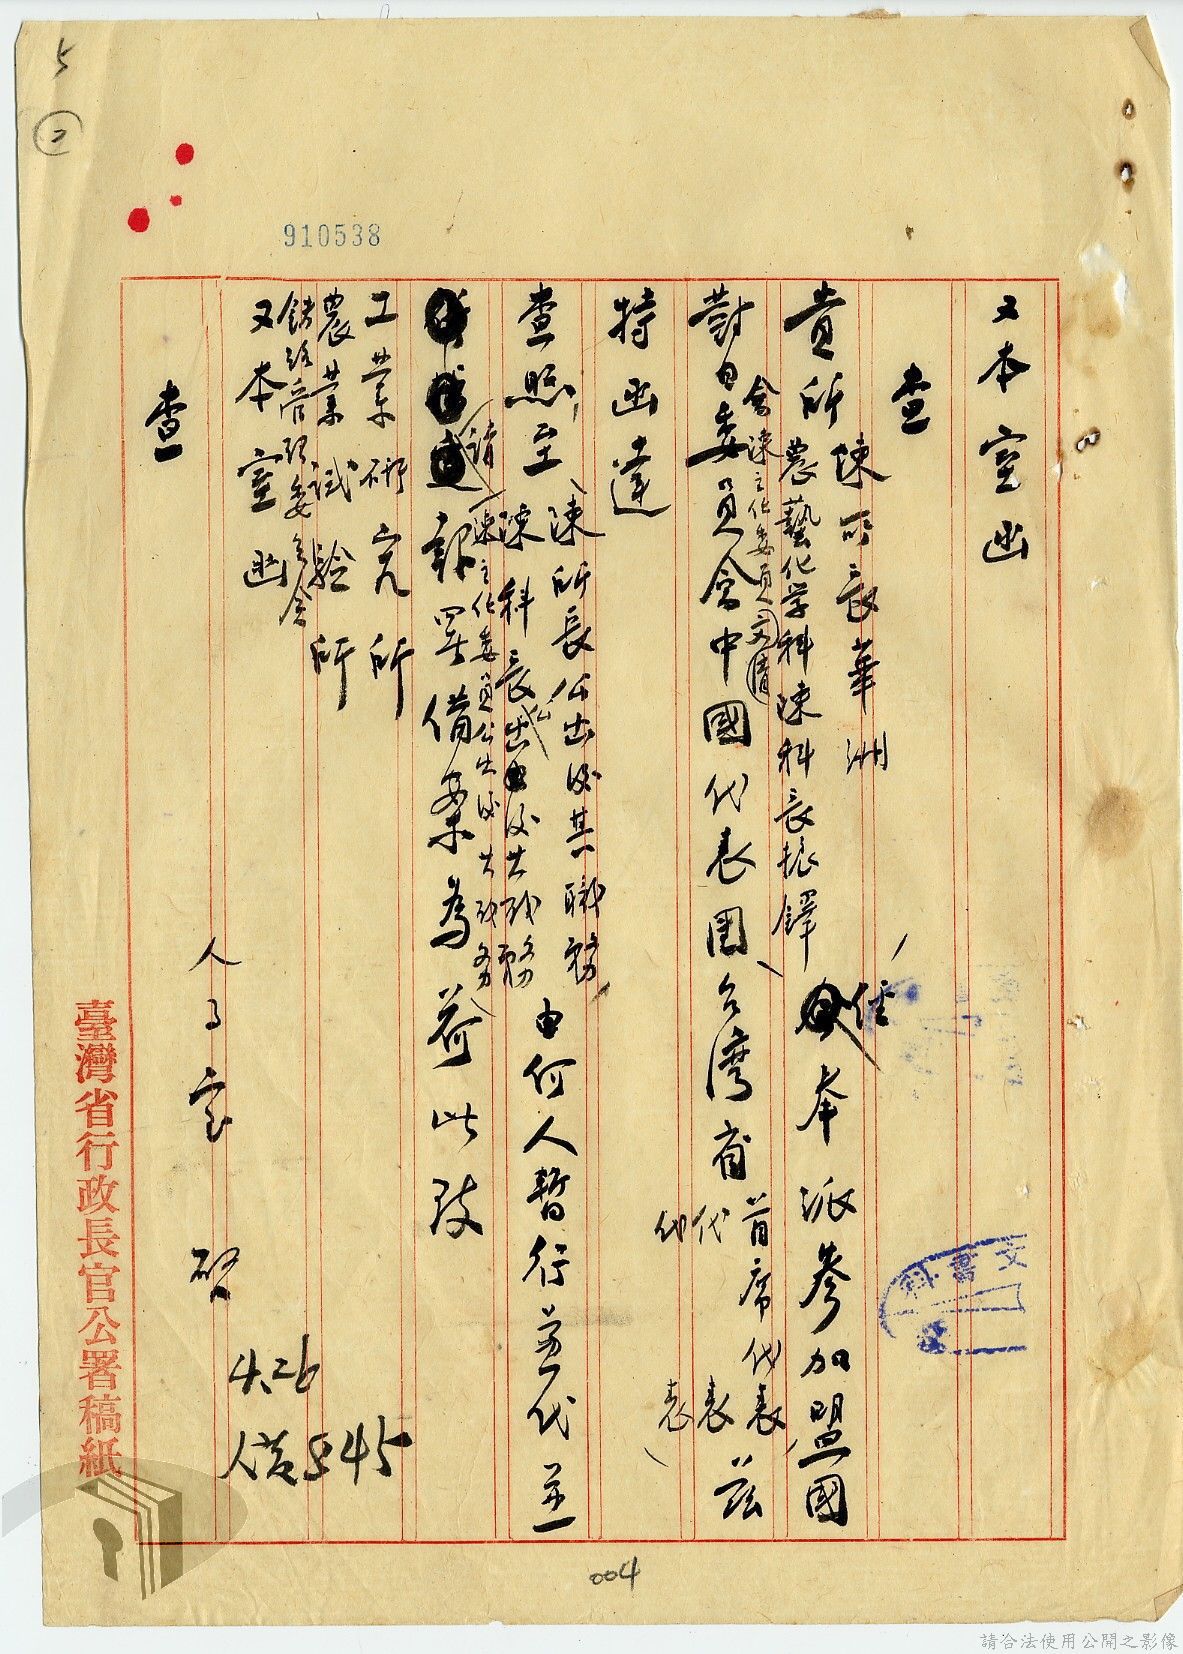 又本室函
查
陳所長華洲
貴所農藝化学科陳科長振鐸
會陳主化委員文清
經奉派參加盟國
對日委員会中國代表團台灣省
首席代表
代表
代表
茲
特函達
查照至
陳所長公出後其職務
陳科長公出後其職務
陳主化委員公出後其職務
由何人暫行兼代並
請
報署備案為荷此致
工業研究所
農業試验所
又本室函
查
人事室 啓
4.26
545
臺灣省行政長官公署稿紙
910538
5
②
004
文書科
請合法使用公開之影像